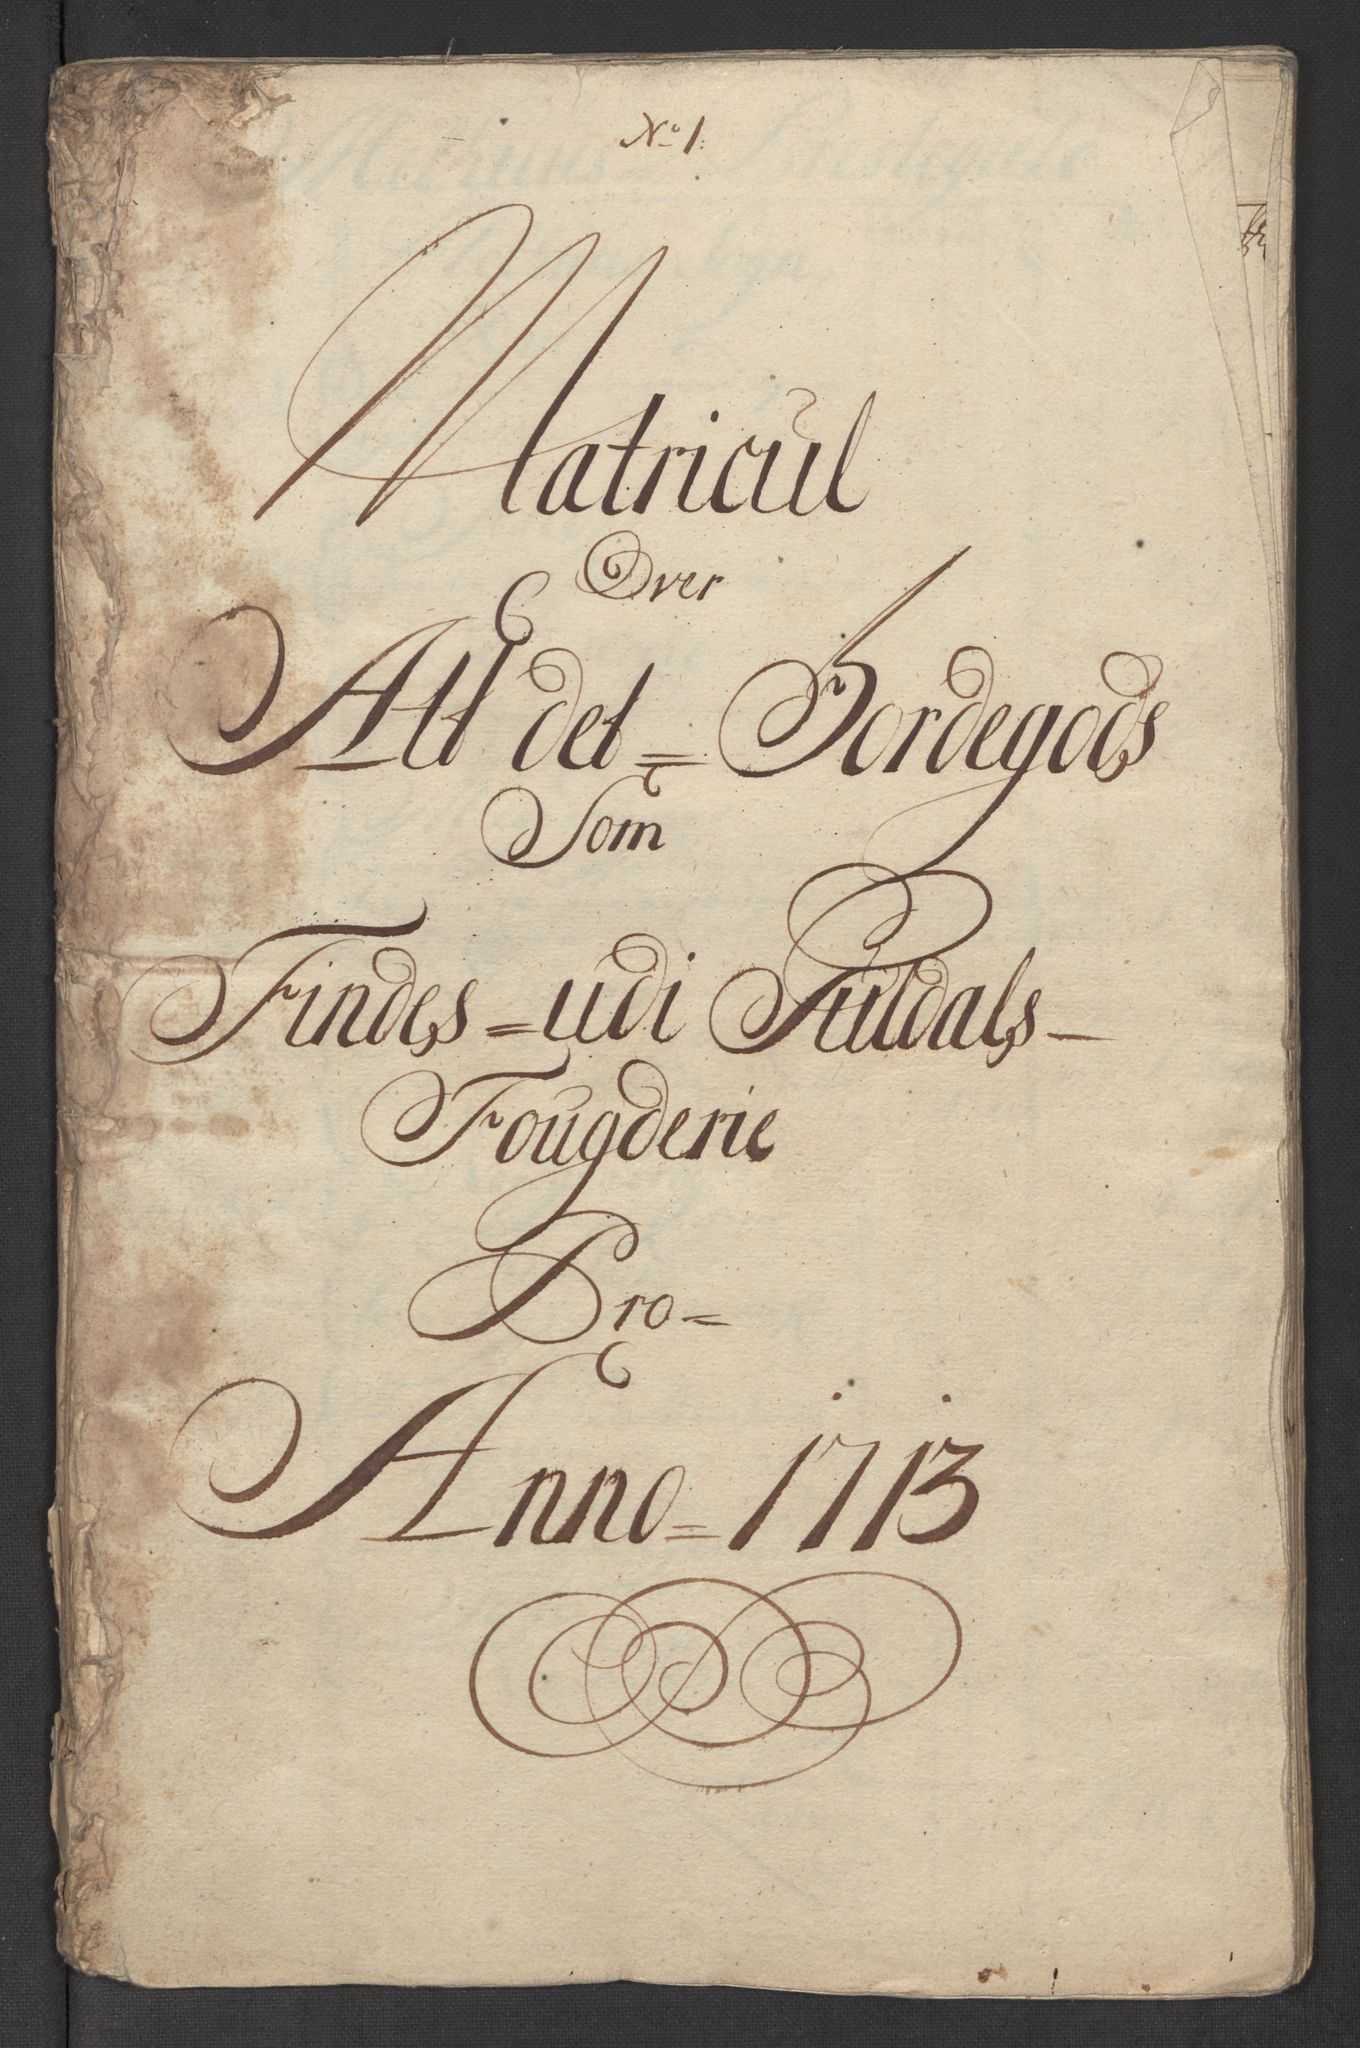 No 1.
Matricul
Over
Alt det = Jordegods
Som
Findes = udi Guldals -
Fougderie
Pro =
Anno = 1713